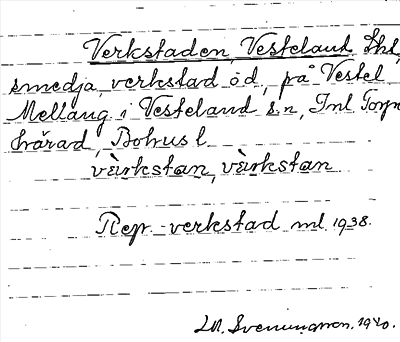 Verkstaden, Vesteland Shl,
smedja, verkstad öd, på Vestel
Mellang i Vesteland sn, Inl Torpe
härad, Bohus l.
vèrkstan, vèrkstan
Rep.-verkstad ml. 1938.
Svenungsson. 1940.